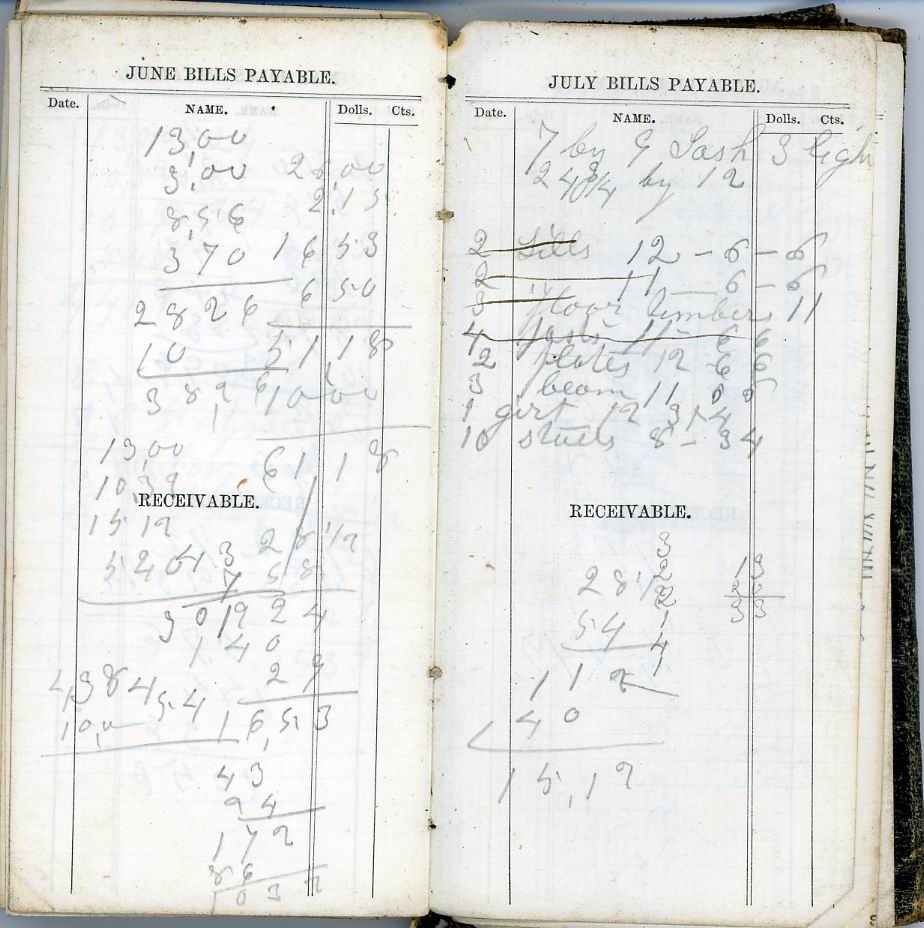 JUNE BILLS PAYABLE.
Date. NAME. Dolls. Cts.
13,00
3,00 28,00
8,56 2,15
370 16 53
6 50
2826
10 51,18
3826 10 00
13,00 61 18
10,39
RECEIVABLE.
15 12
52043 28,12
7 58
3019 24
140
29
4,384 5.4
10,0 16,53
43
24
172
86
1032
JULY BILLS PAYABLE.
Date. NAME. Dolls. Cts.
7 by 9 Sash 3 ligh
by 12
2 Sills 12 - 6 - 6
2 11 - 6 - 6
3 floor timber 11
4 11 - 6 6
2 plates 12 - 6 6
3 beam 11 6 6
1 girt 12 3 - 4
10 studs 8 - 3 4
RECEIVABLE.
3
28,12 13
2 20
54 1 33
4
1
112
40
15,12